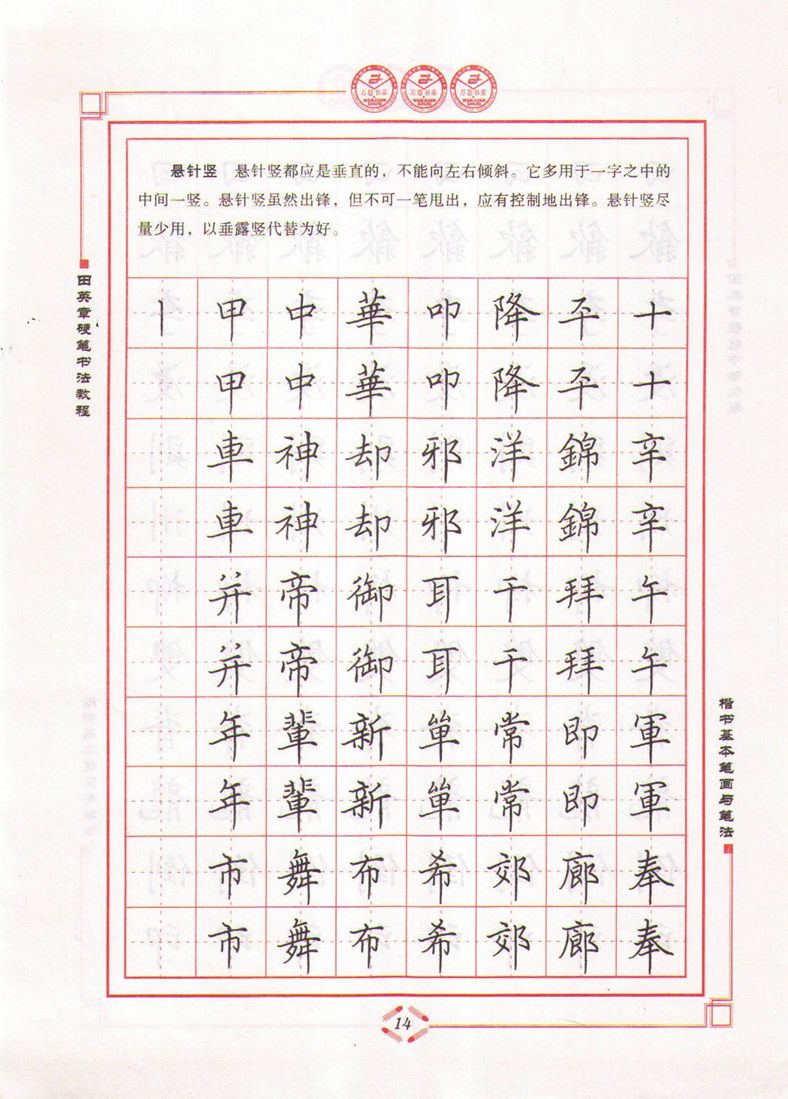 万卷书系 万卷书系 万卷书系
WANJUAN WANJUAN WANJUAN
SHUXI SHUXI SHUXI
悬针竖 悬针竖都应是垂直的，不能向左右倾斜。它多用于一字之中的
中间一竖。悬针竖虽然出锋，但不可一笔甩出，应有控制地出锋。悬针竖尽
量少用，以垂露竖代替为好。
田英章硬笔书法教程
丨 甲 中 華 叩 降 平 十
甲 中 華 叩 降 平 十
車 神 却 邪 洋 錦 辛
車 神 却 邪 洋 錦 辛
并 帝 御 耳 干 拜 午
并 帝 御 耳 干 拜 午
年 輩 新 單 常 即 軍
年 輩 新 單 常 即 軍
市 舞 布 希 郊 廊 奉
市 舞 布 希 郊 廊 奉
楷书基本笔画与笔法
14